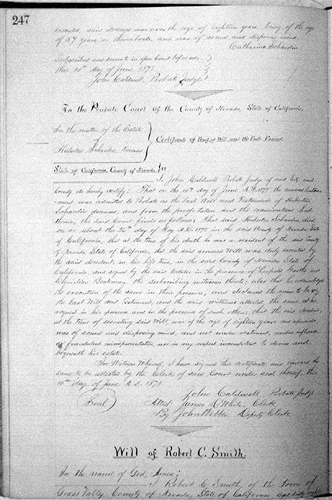 247
decedent, said devisor was over the age of eighteen years, being of the age
of 57 years or thereabouts, and was of sound and disposing mind.
Catharina Schardin
Subscribed and sworn to in open Court before me,
this 10th day of June 1875.
John Caldwell, Probate Judge
In the Probate Court of the County of Nevada, State of California.
In the matter of the Estate
of
Schardin, Deceased
Certificate of Proof of Will and the Facts Proved
State of California, County of Nevada, ss
I, John Caldwell Probate Judge of said City and
County do hereby certify: That on the 10th day of June A.D. 1875 the annexed instru-
ment was admitted to Probate as the last Will and Testament of
Schardin deceased, and from the proofs taken and the examination had
therein, the said Court finds as follows: That said Schardin died
on or about the day of A.D. 1875 in the said County of Nevada State
of California, that at the time of his death he was a resident of the said County
of Nevada State of California, that the said annexed Will was duly executed by
the said decedent in his life time, in the said County of Nevada State of
California and signed by the said testator in the presence of and
the subscribing witnesses thereto; that he acknowledged
the execution of the same in their presence, and declared the same to be
his last Will and Testament, and the said witnesses attested the same at his
request in his presence and in the presence of each other; that the said decedent
at the time of executing said Will was of the age of eighteen years and upwards,
was of sound and disposing mind, and not under restraint, undue influence
or fraudulent misrepresentation, nor in any respect incompetent to devise and
bequeath his estate.
In Witness Whereof, I have signed this certificate and caused the
same to be attested by the Clerk of said Court under seal thereof, this
10th day of June A.D. 1875.
John Caldwell Probate Judge
Seal Attest, James White, Clerk
By John Webber Deputy Clerk
Will of Robert C. Smith.
In the name of God, Amen;
I Robert C. Smith, of the Town of
Grass Valley County of Nevada, State of California